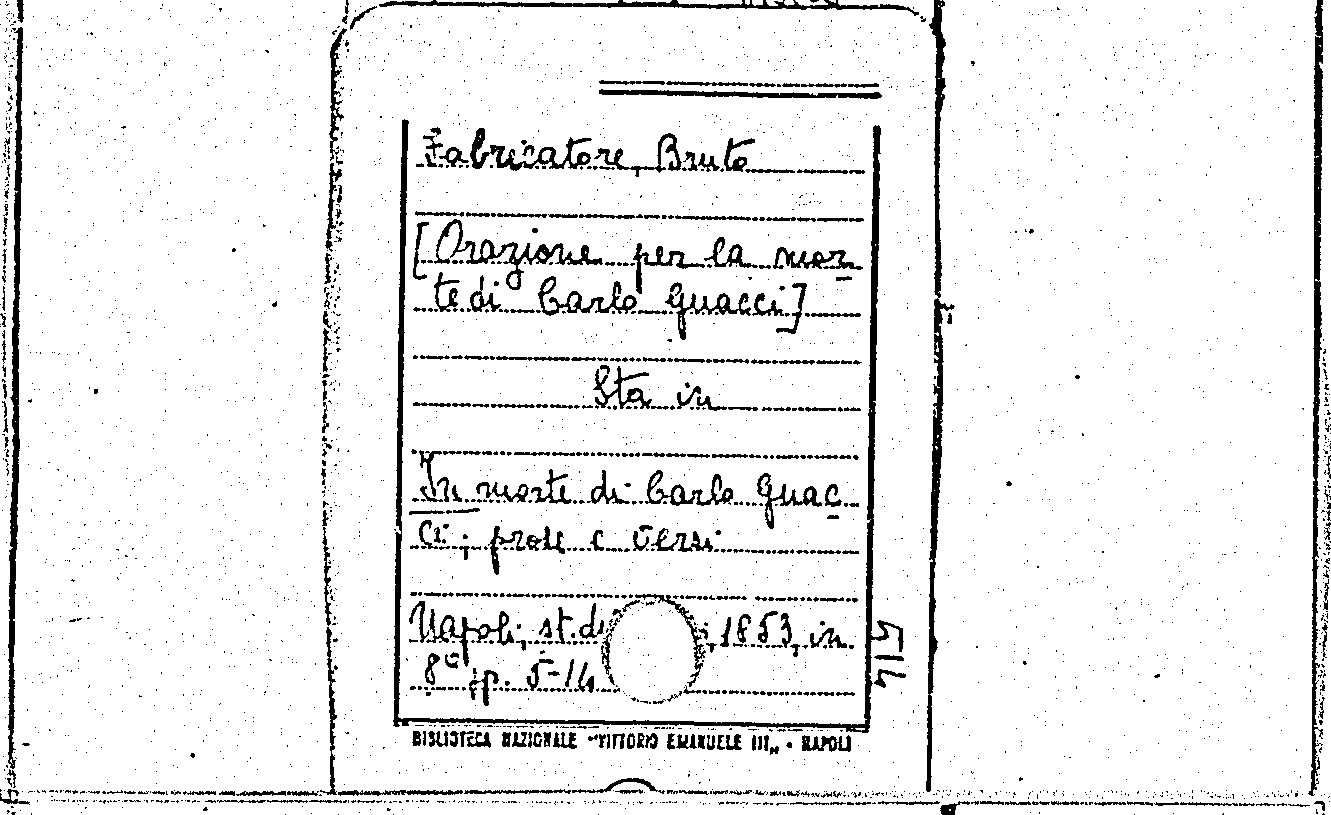 Fabricatore, Bruto
[Orazione per la mor
te di Carlo Guacci]
Sta in
In morte di Carlo Guac
ci; prose e versi
Napoli, st. di , 1853, in
8°, p. 5-14
514
BIBLIOTECA NAZIONALE "VITTORIO EMANUELE III„ - NAPOLI